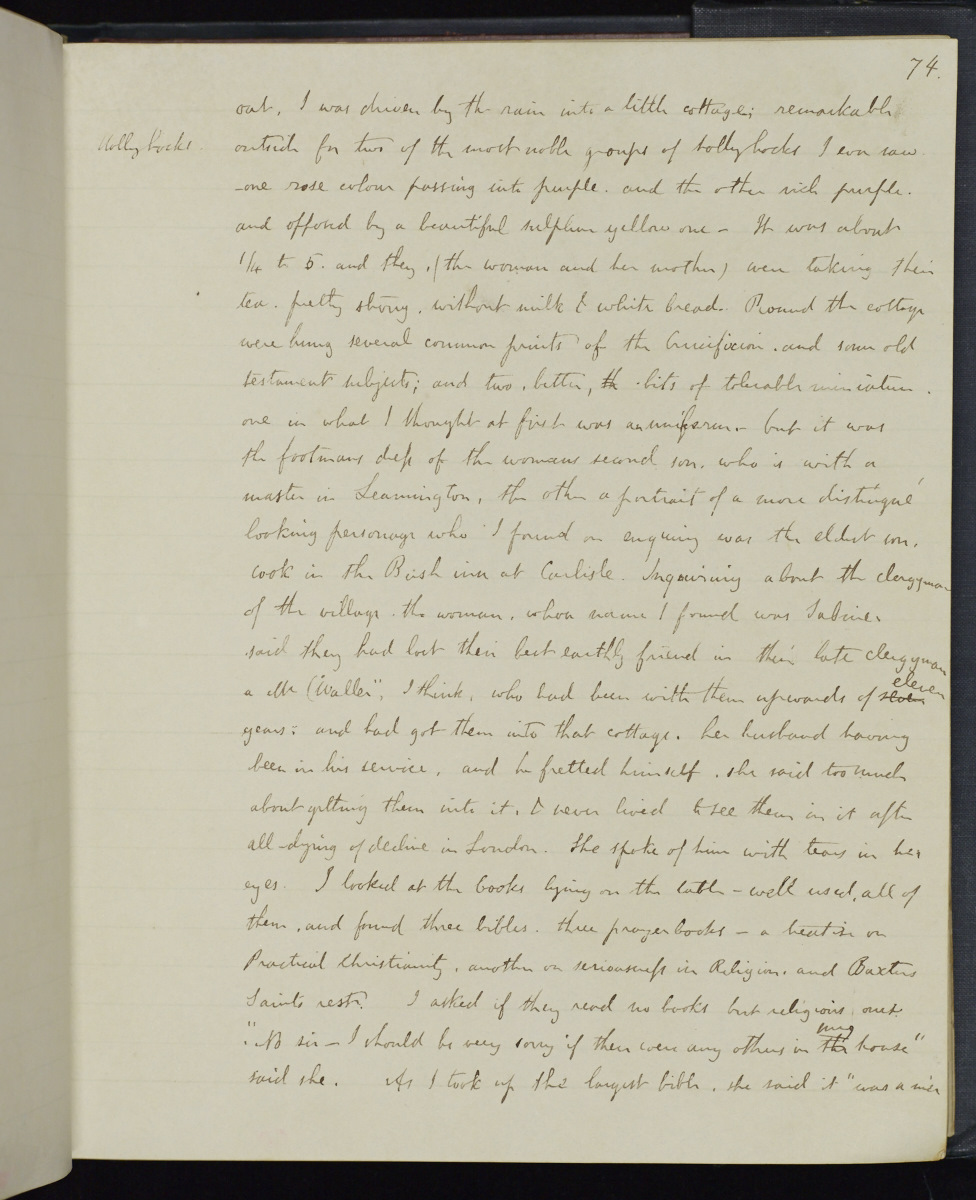 74.
out, I was driven by the rain into a little cottage; remarkable
Hollyhocks.
outside for two of the most noble groups of hollyhocks I ever saw
-one rose colour passing into purple. and the other rich purple.
and opposed by a beautiful sulphur yellow one - It was about
1/4 to 5. and they, (the woman and her mother) were taking their
tea. pretty strong, without milk & white bread. Round the cottage
were hung several common prints of the Crucifixion. and some old
testament subjects; and two, better, the bits of tolerable miniature.
one in what I thought at first was an uniform.- but it was
the footmans dress of the womans second son. who is with a
master in Leamington, the other a portrait of a more distingué
looking personage who I found on enquiry was the eldest son.
cook in the Bush inn at Carlisle. Inquiring about the clergyman
of the village. the woman, whose name I found was Sabine.
said they had lost their best earthly friend in their late clergyman
a Mr (Waller", I think, who had been with them upwards of eleven
years: and had got them into that cottage. her husband having
been in his service, and he fretted himself, she said too much
about getting them into it, & never lived to see them in it after
all-dying of decline in London. She spoke of him with tears in her
eyes. I looked at the books lying on the table - well used, all of
them, and found three bibles. three prayerbooks - a treatise on
Practical Christianity, another on seriousness in Religion. and Baxters
Saints rest. I asked if they read no books but religious ones.
"No sir - I should be very sorry if there were any others in the my house"
said she. As I took up the largest bible, she said it "was a nice